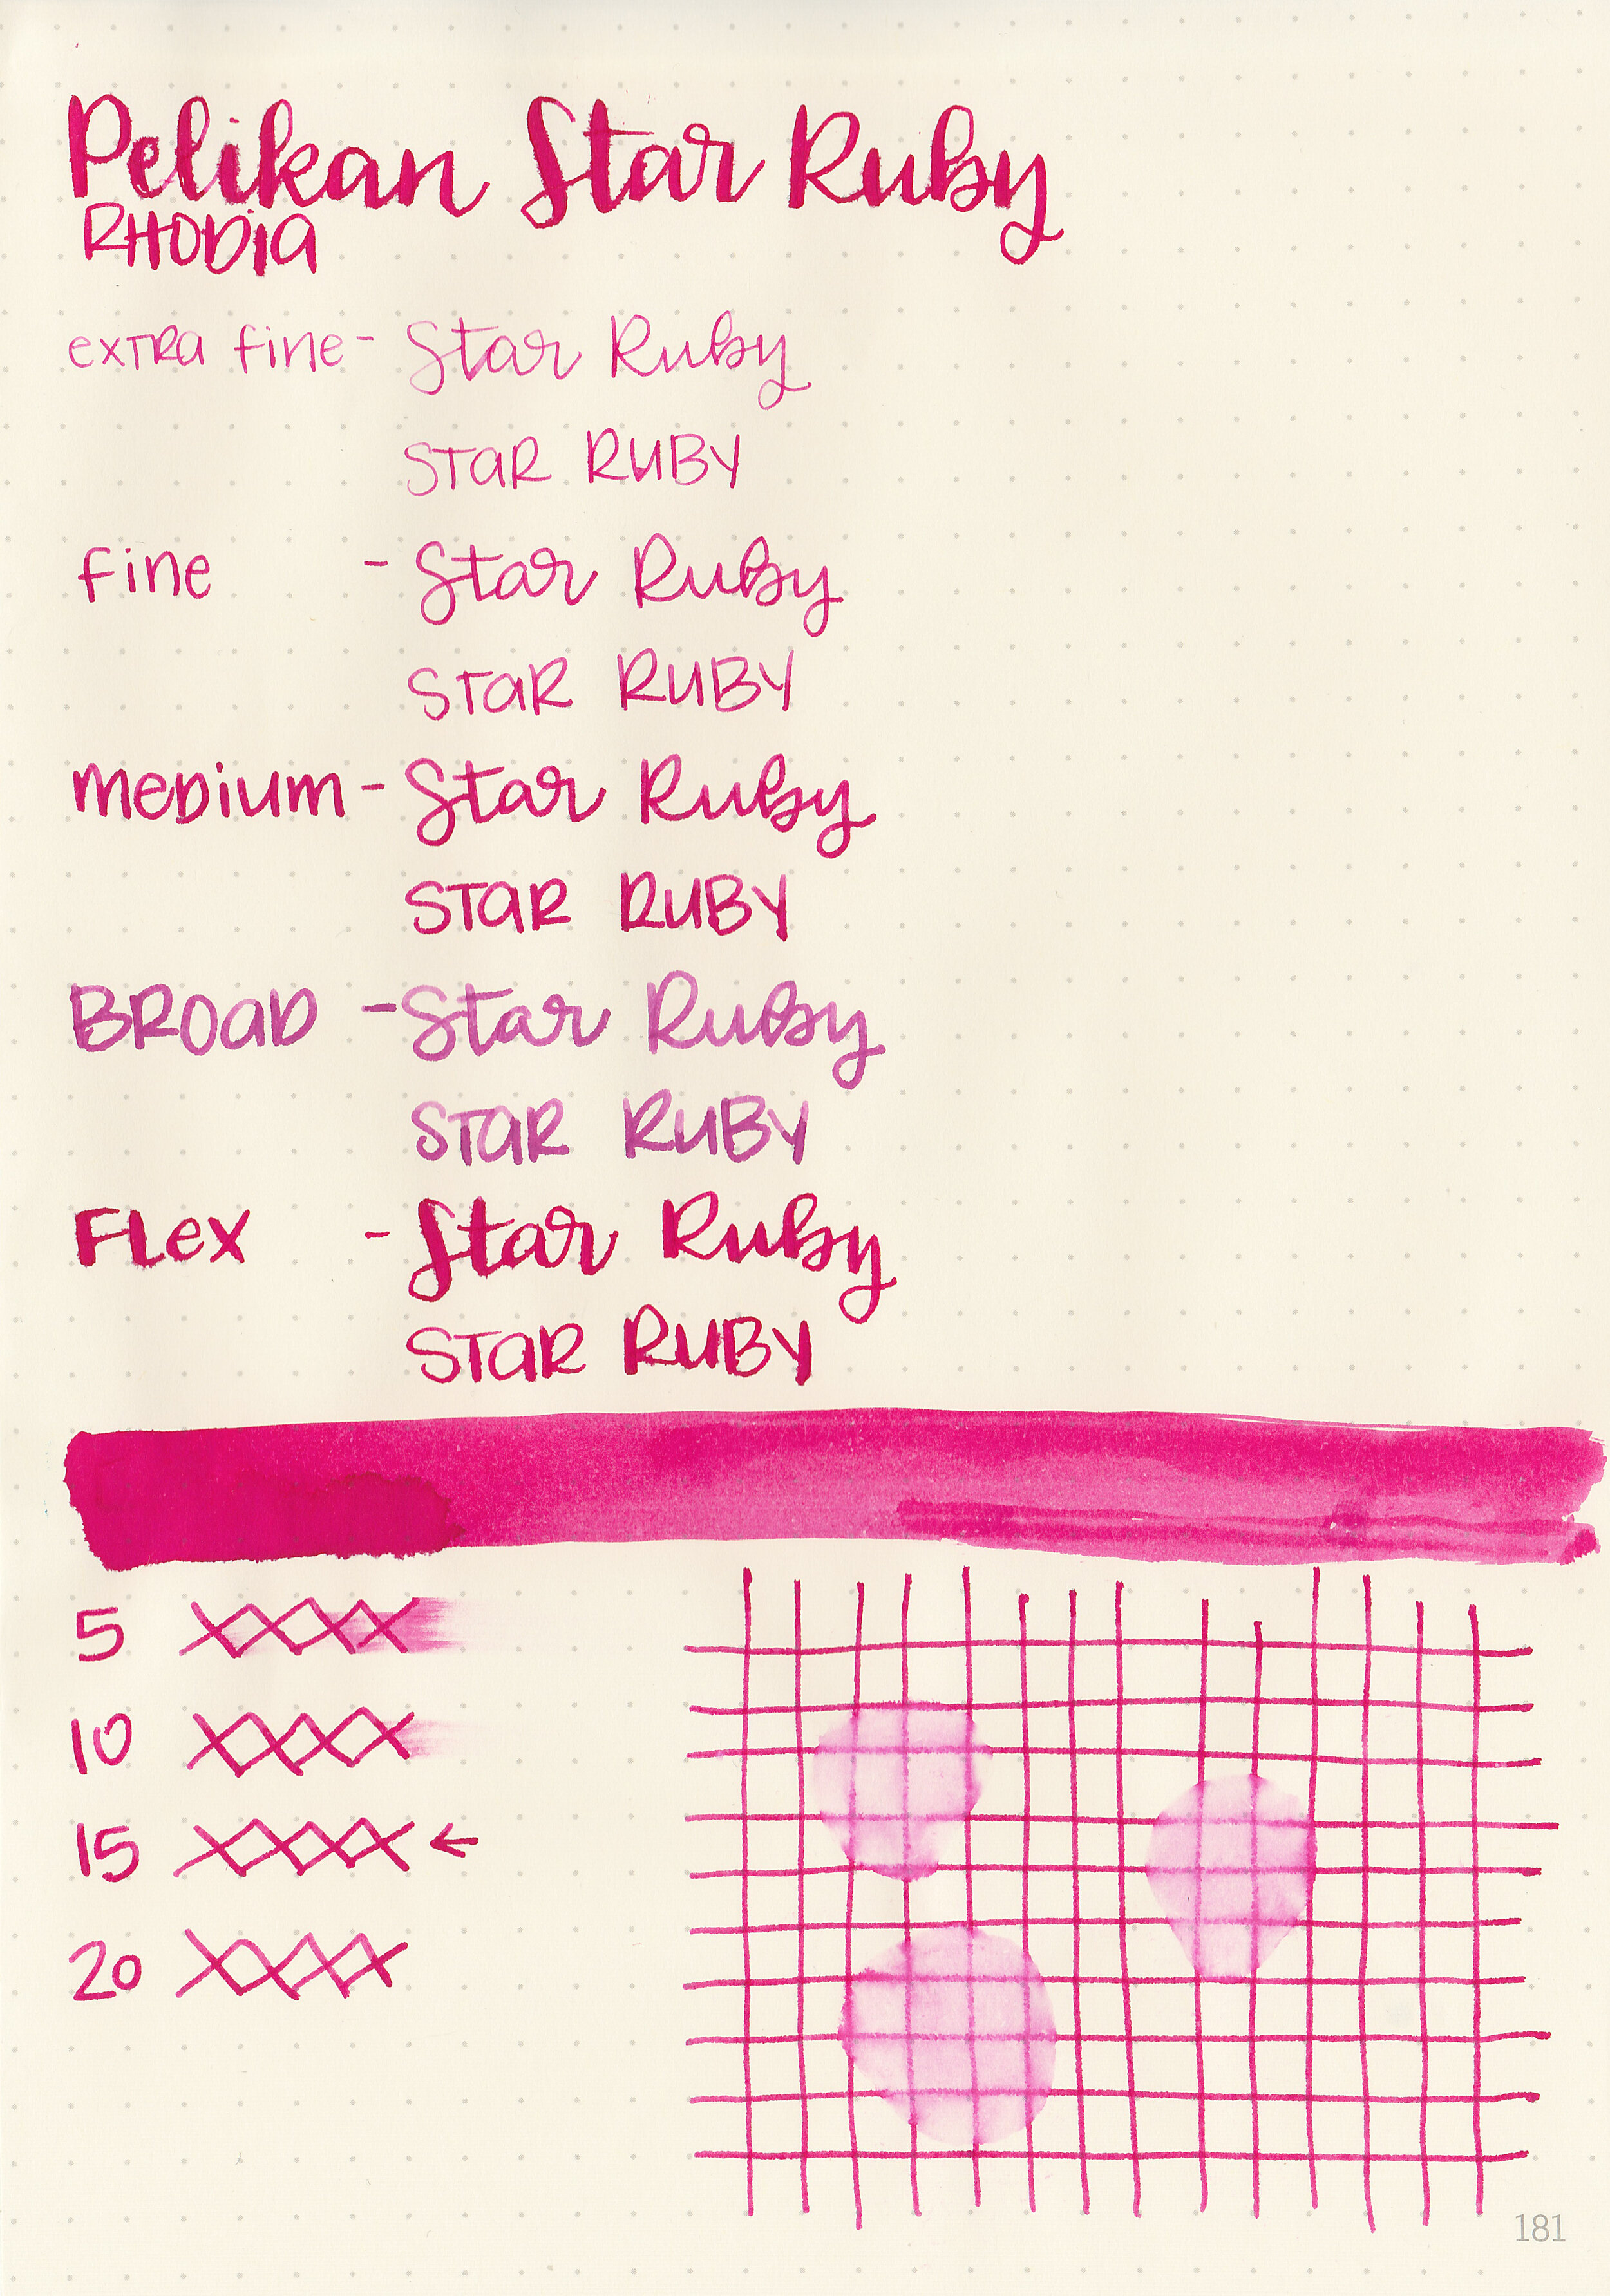 Pelikan Star Ruby
RHODia
exTRa fine - Star Ruby
STaR RUBY
fine - Star Ruby
STaR RUBY
meDium - Star Ruby
STaR RUBY
BROaD - Star Ruby
STaR RUBY
FLex - Star Ruby
STaR RUBY
5 XXXX
10 XXXX
15 XXXX ←
20 XXXX
181